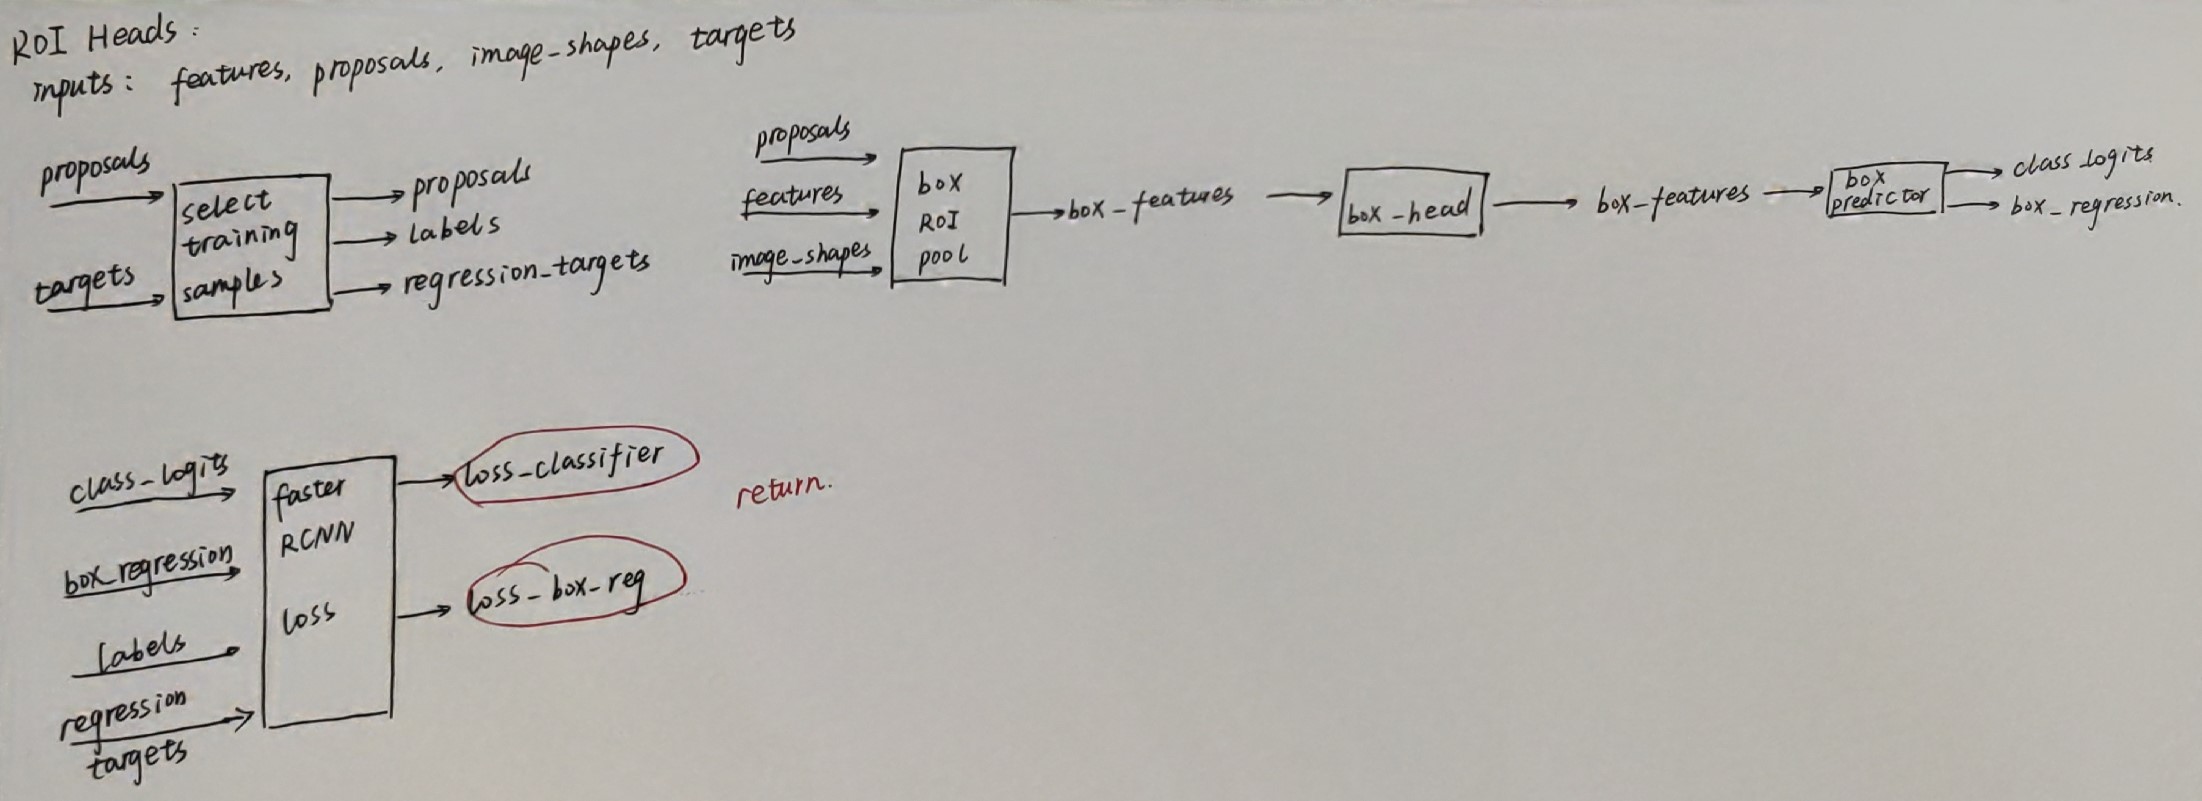 ROI Heads:
inputs: features, proposals, image_shapes, targets
proposals
targets
select
training
samples
proposals
labels
regression_targets
proposals
features
image_shapes
box
ROI
pool
box_features
box_head
box_features
box
predictor
class_logits
box_regression.
class_logits
box_regression
labels
regression
targets
faster
RCNN
loss
loss_classifier
loss_box_reg
return.